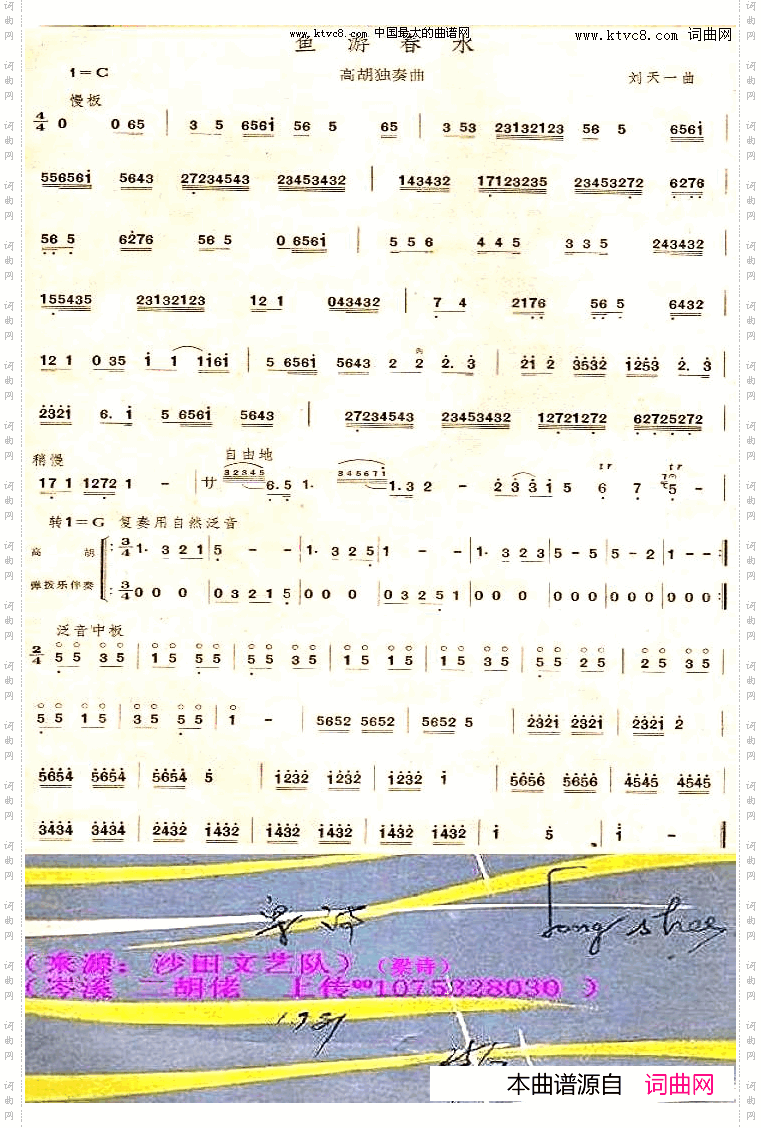 www.ktvc8.com 中国最大的曲谱网
www.ktvc8.com 词曲网
鱼游春水
1=C
高胡独奏曲
刘天一曲
慢板
4/4 0 0 65 | 3 5 6561 56 5 65 | 3 53 23132123 56 5 6561 |
556561 5643 27234543 23453432 | 143432 17123235 23453272 6276 |
56 5 6276 56 5 0 6561 | 5 5 6 4 4 5 3 3 5 243432 |
155435 23132123 12 1 043432 | 7 4 2176 56 5 6432 |
12 1 0 35 1 1 1161 | 5 6561 5643 2 2 2. 3 | 21 2 3532 1253 2. 3 |
2321 6. 1 5 6561 5643 | 27234543 23453432 12721272 62725272 |
稍慢
自由地
17 1 1272 1 - | 廿 32345 6.5 1. 345671 1.3 2 - 2 3 3 1 5 6 7 5 -
转1=G 复奏用自然泛音
高胡 3/4 1. 3 2 1 | 5 - - | 1. 3 2 5 | 1 - - | 1. 3 2 3 | 5 - 5 | 5 - 2 | 1 - - :|
弹拨乐伴奏 3/4 0 0 0 | 0 3 2 1 5 | 0 0 0 | 0 3 2 5 1 | 0 0 0 | 0 0 0 | 0 0 0 | 0 0 0 :|
泛音中板
2/4 5 5 3 5 | 1 5 5 5 | 5 5 3 5 | 1 5 1 5 | 1 5 3 5 | 5 5 2 5 | 2 5 3 5 |
5 5 1 5 | 3 5 5 5 | 1 - | 5652 5652 | 5652 5 | 2321 2321 | 2321 2 |
5654 5654 | 5654 5 | 1232 1232 | 1232 1 | 5656 5656 | 4545 4545 |
3434 3434 | 2432 1432 | 1432 1432 | 1432 1432 | 1 5 | 1 - |
(来源:沙田文艺队)(梁诗)
(岑溪 二胡佬 上传QQ1075328030 )
本曲谱源自 词曲网